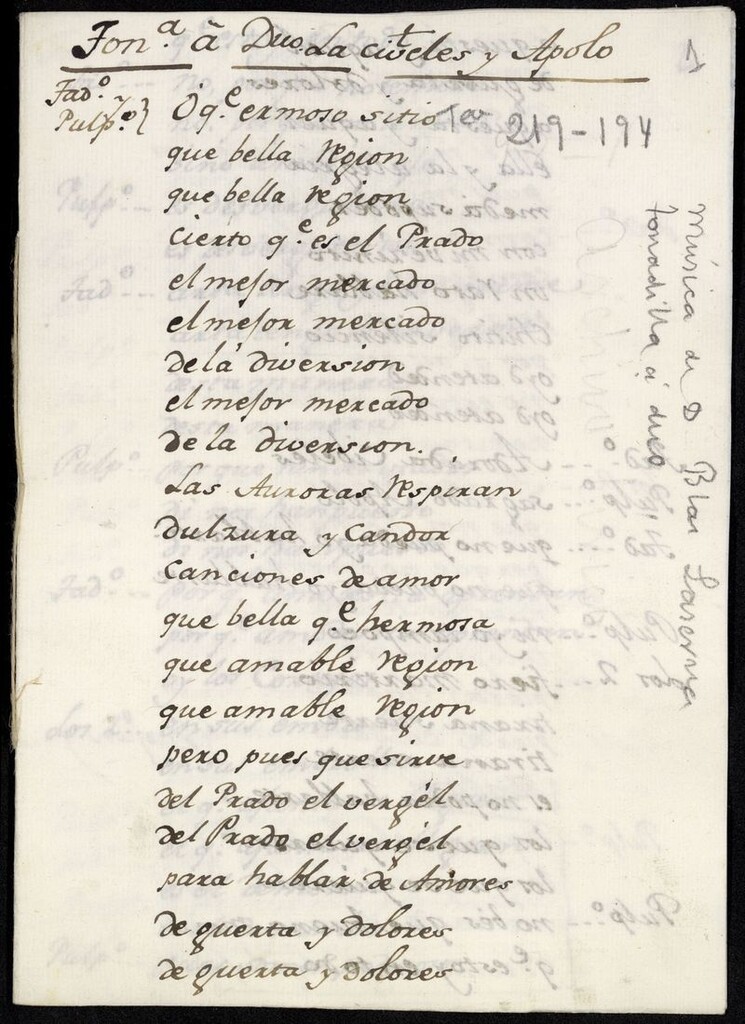 Ton.a â Duo. La civeles y Apolo
1
Tad.o y
Pulp.o } O q.e ermoso sitio
Tea 219-194
que bella region
que bella region
cierto q.e es el Prado
el mejor mercado
el mejor mercado
de la diversion
el mejor mercado
de la diversion.
Las Auroras respiran
Dulzura y Candor
Canciones de amor
que bella q.e hermosa
que amable region
que amable region
pero pues que sirve
del Prado el vergel
del Prado el vergel
para hablar de Amores
de querta y dolores
de querta y dolores
Música de D Blas Laserna
tonadilla a duo